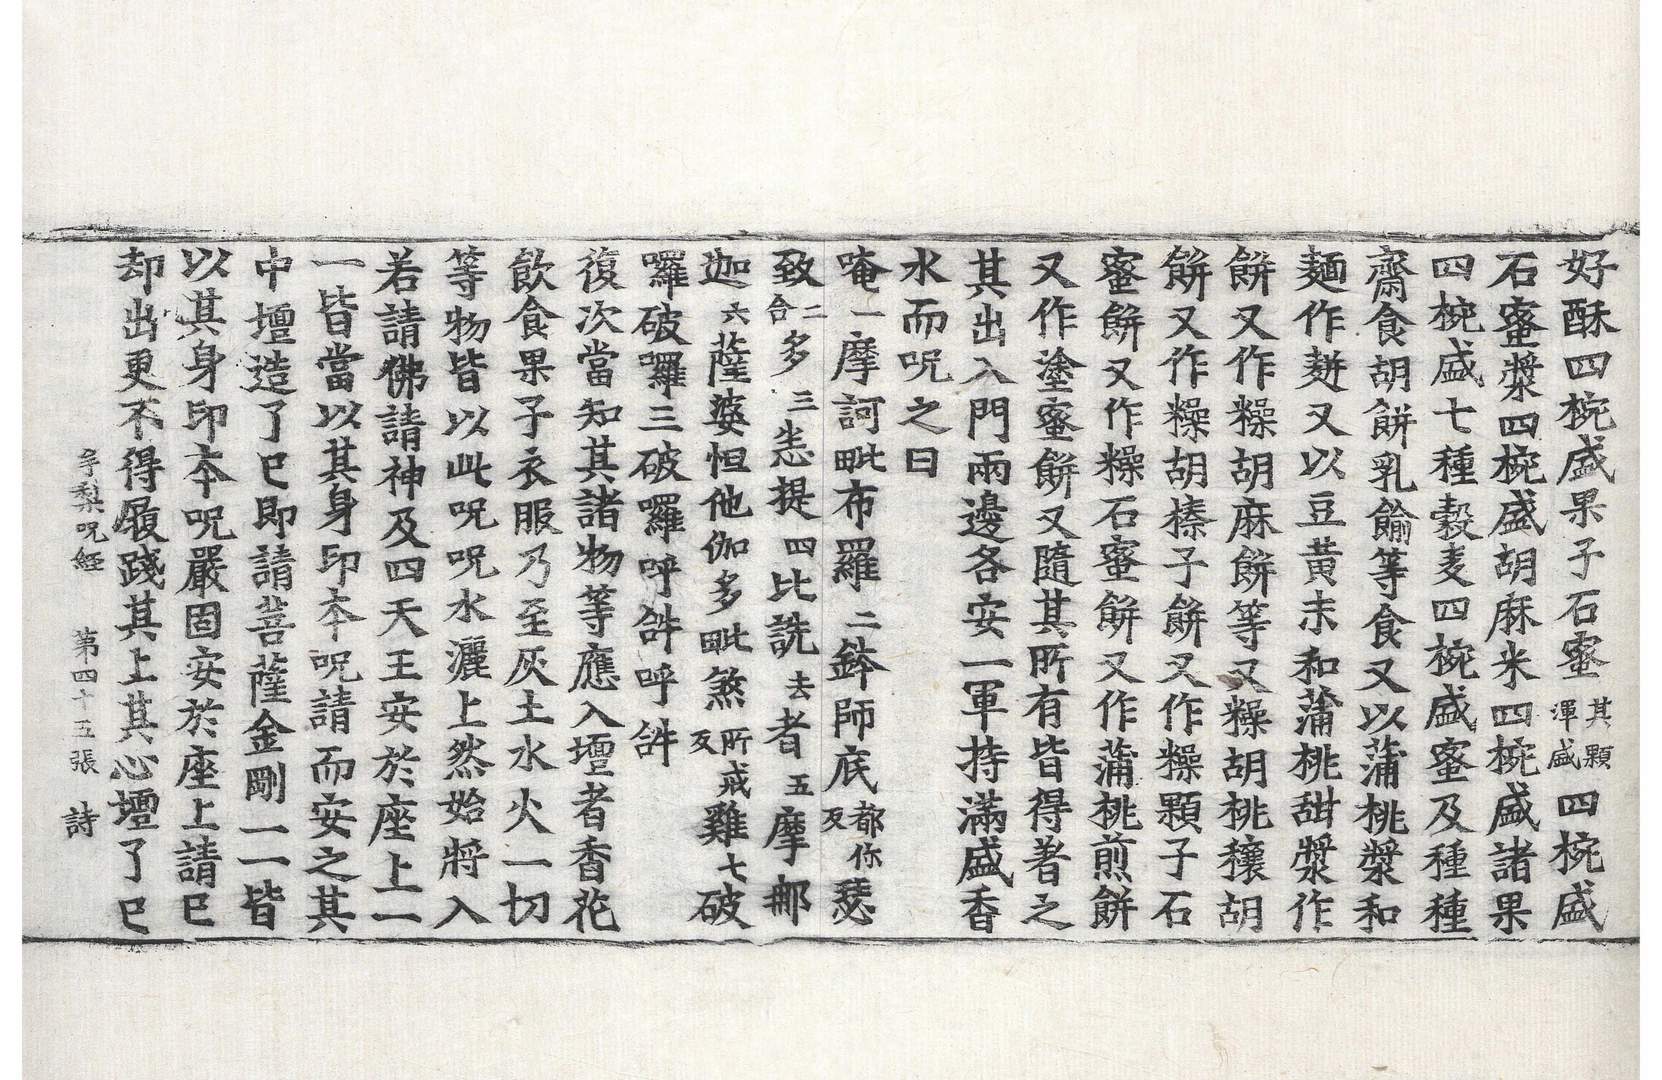 好酥四椀盛果子石蜜其顆渾盛四椀盛
石蜜漿四椀盛胡麻米四椀盛諸果
四椀盛七種穀麦四椀盛蜜及種種
齋食胡餅乳餶等食又以蒲桃漿和
麺作䴵又以豆黄末和蒲桃甜漿作
餅又作糗胡麻餅等又糗胡桃穰胡
餅又作糗胡榛子餅又作糗顆子石
蜜餅又作糗石蜜餅又作蒲桃煎餅
又作塗蜜餅又隨其所有皆得著之
其出入門兩邊各安一軍持滿盛香
水而呪之曰
唵一摩訶毗布羅二鉢師底都你反瑟
致二合多三恙提四比詵去者五摩郍
迦六薩婆怛他伽多毗煞所戒反雞七破
囉破囉三破囉呼𤙖呼𤙖
復次當知其諸物等應入壇者香花
飲食果子衣服乃至灰土水火一切
等物皆以此呪呪水灑上然始將入
若請佛請神及四天王安於座上一
一皆當以其身印本呪請而安之其
中壇造了已即請菩薩金剛一一皆
以其身印本呪嚴固安於座上請已
却出更不得履踐其上其心壇了已
孚梨呪經　第四十五張　詩